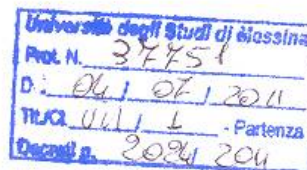 Università degli Studi di Messina
Prot. N. 37751
D. 04 / 07 / 2011
Tit./Cl. VII / 1 - Partenza
Decreti n. 2024/ 2011